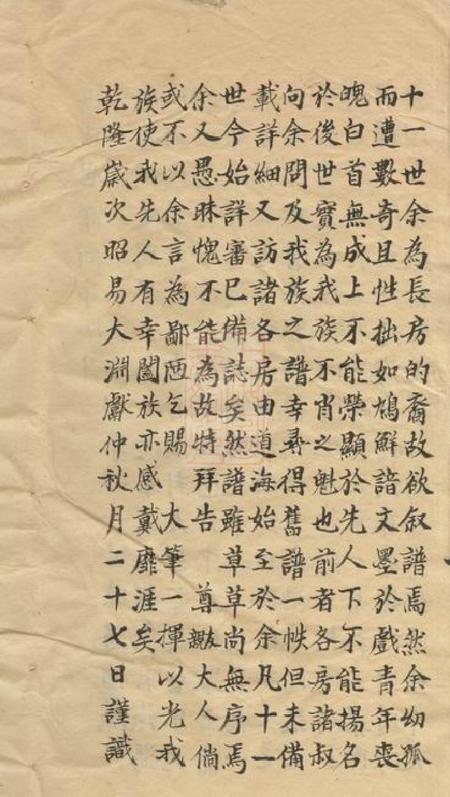 十一世余為長房的裔故欲叙譜焉然余幼孤
而遭數奇且性拙如鳩鮮諳文墨於戲青年喪
魄白首無成上不能榮顯於先人下不能揚名
於後世實為我族不肖之魁也前者各房諸叔
向余問及我族之譜幸尋得舊譜一帙但未備
載詳細又訪諸各房由道海始至於余凡十一
世今始詳審已備誌矣然譜雖草草尚無序焉
余又愚昧愧不能為故特拜告 尊歟大人倘
或不以余言為鄙陋乞賜 大筆一揮以光我
族使我先人有幸闔族亦感戴靡涯矣
乾隆歲次昭昜大淵獻仲秋月二十七日謹識